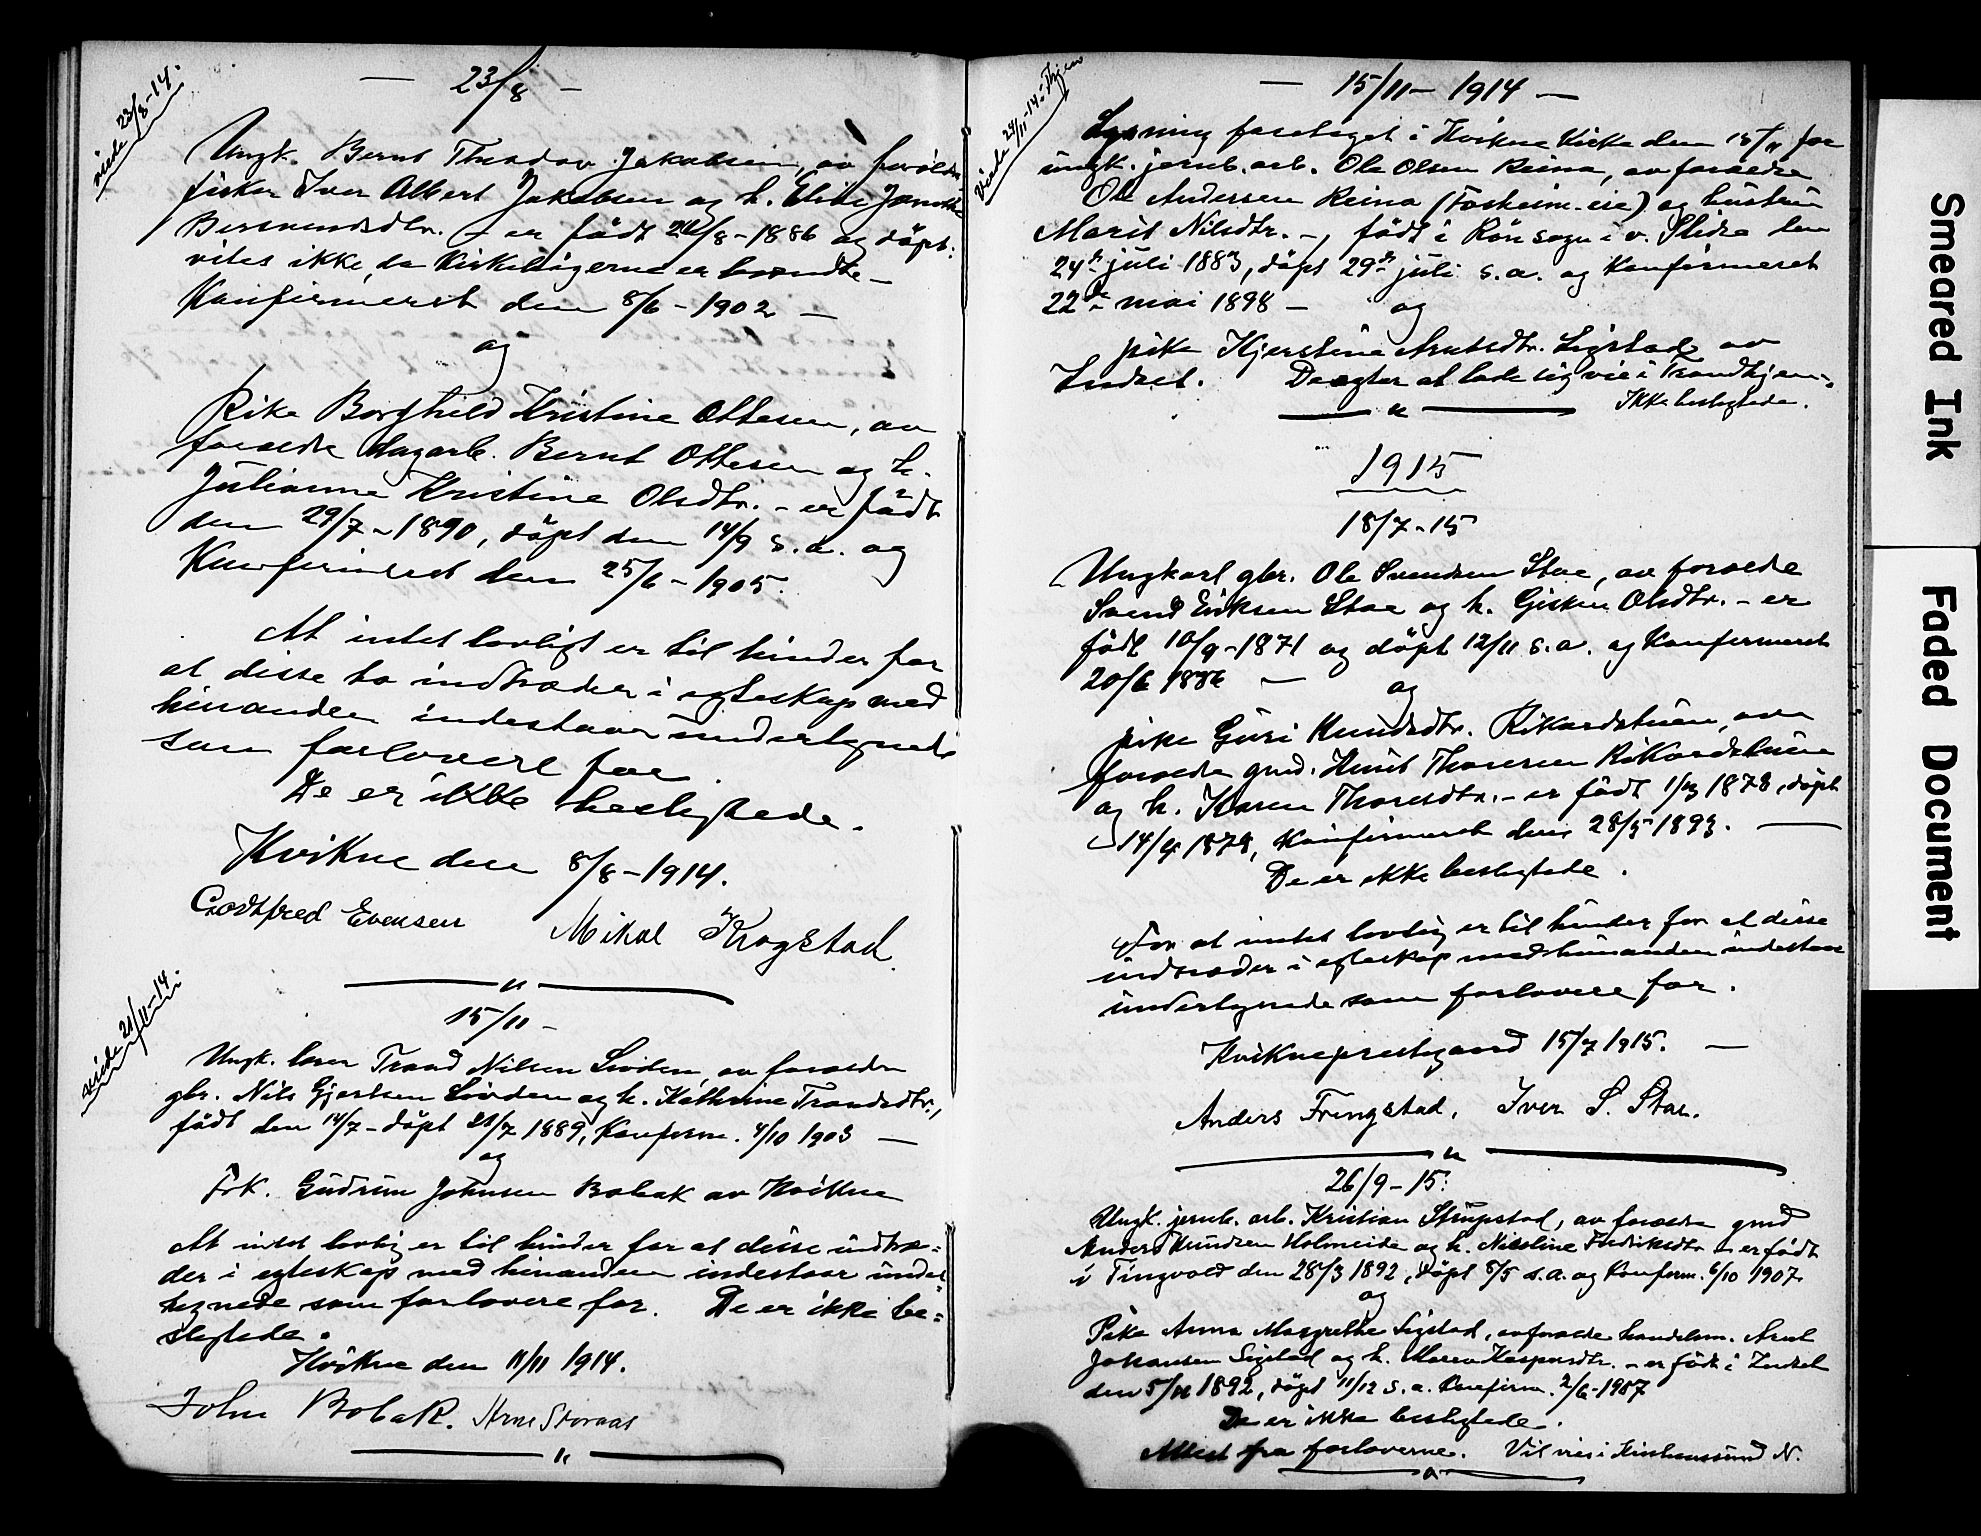 viede 23/8-14.
— 23/8 —
Ungk. Bernt Theodor Jakobsen, av foræld.
fisker Iver Albert Jakobsen og h. Eline
– er födt 24/8-1886 og döpt:
vites ikke, da Kirkebögerne er brændte –
Konfirmeret den 8/6 - 1902 —
og
Pike Borghild Kristine Ottesen, av
forældre dagarb. Bernt Ottesen og h.
Julianne Kristine Olsdtr. - er födt
den 29/7 - 1890, döpt den 14/9 s. a. og
Konfirmeret den 25/6 - 1905.
At intet lovligt er til hinder for
at disse to indtræder i egteskap med
hinanden indestaar undertegnede
som forlovere for.
De er ikke beslegtede.
Kvikne den 8/8 - 1914.
Godtfred Evensen Mikal Krogstad.
viede 21/11-14.
15/11 —
Ungk. lærer Trond Nilsen Lövden, av forældre
gbr. Nils Gjertsen Lövden og h. Kathrine Trondsdtr.,
födt den 14/7 - döpt 21/7 1889, Konferm. 4/10 1903 —
og
Frk. Gudrun Johnsen Bobak av Kvikne
At intet lovlig er til hinder for at disse indtræ=
der i egteskap med hinanden indestaar under=
tegnede som forlovere for. De er ikke be=
slegtede.
Kvikne den 11/11 1914.
John Bobak. Arne Storaas
Viede 24/11-14 i Thjem
— 15/11 - 1914 —
Lysning foretaget i Kvikne Kirke den 15/11 for
ungk. jernb. arb. Ole Olsen Reina, av forældre
Ole Andersen Reina (Fosheim-eie) og hustru
Marit Nilsdtr. -, födt i Rön sogn i v. Slidre den
24de juli 1883, döpt 29de juli s. a. og Konfirmeret
22de mai 1898 — og
pike Kjerstine Arntsdtr. Sigstad av
Indset. De agter at lade sig vie i Trondhjem.
Ikke beslegtede.
1915
18/7-15
Ungkarl gbr. Ole Svendsen Stae, av forældre
Svend Eriksen Stae og h. Gisken Olsdtr. - er
födt 10/9-1871 og döpt 12/11 s. a. og Konfermeret
20/6 1886 — og
pike Guri Knudsdtr. Rikardstuen, av
forældre gmd. Knut Thoresen Rikardstuen
og h. Karen Thoresdtr. - er födt 1/3 1878, döpt
14/4 1878, Konfirmeret den 28/5 1893. —
De er ikke beslegtede.
For at intet lovlig er til hinder for at disse
indtræder i egteskap med hinanden indestaar
undertegnede som forlovere for.
Kvikne prestegaard 15/7 1915. —
Anders Frengstad. Iver S. Stae.
26/9 - 15.
Ungk. jernb. arb. Kristian Strupstad, av forældre gmd
Anders Knudsen Holmeide og h. Nilsline Fredriksdtr - er födt
i Tingvold den 28/3 1892, döpt 8/5 s. a. og Konferm. 6/10 1907.
og
Pike Anna Margrethe Sigstad, av forældre handelsm. Arnt
Johansen Sigstad og h. Maren Kaspersdtr. - er född i Indset
den 5/11 1892, döpt 11/12 s. a. Konfirm. 2/6-1907
De er ikke beslegtede.
Attest fra forloverne. Vil vies i Kristianssund N.
Smeared Ink
Faded Document